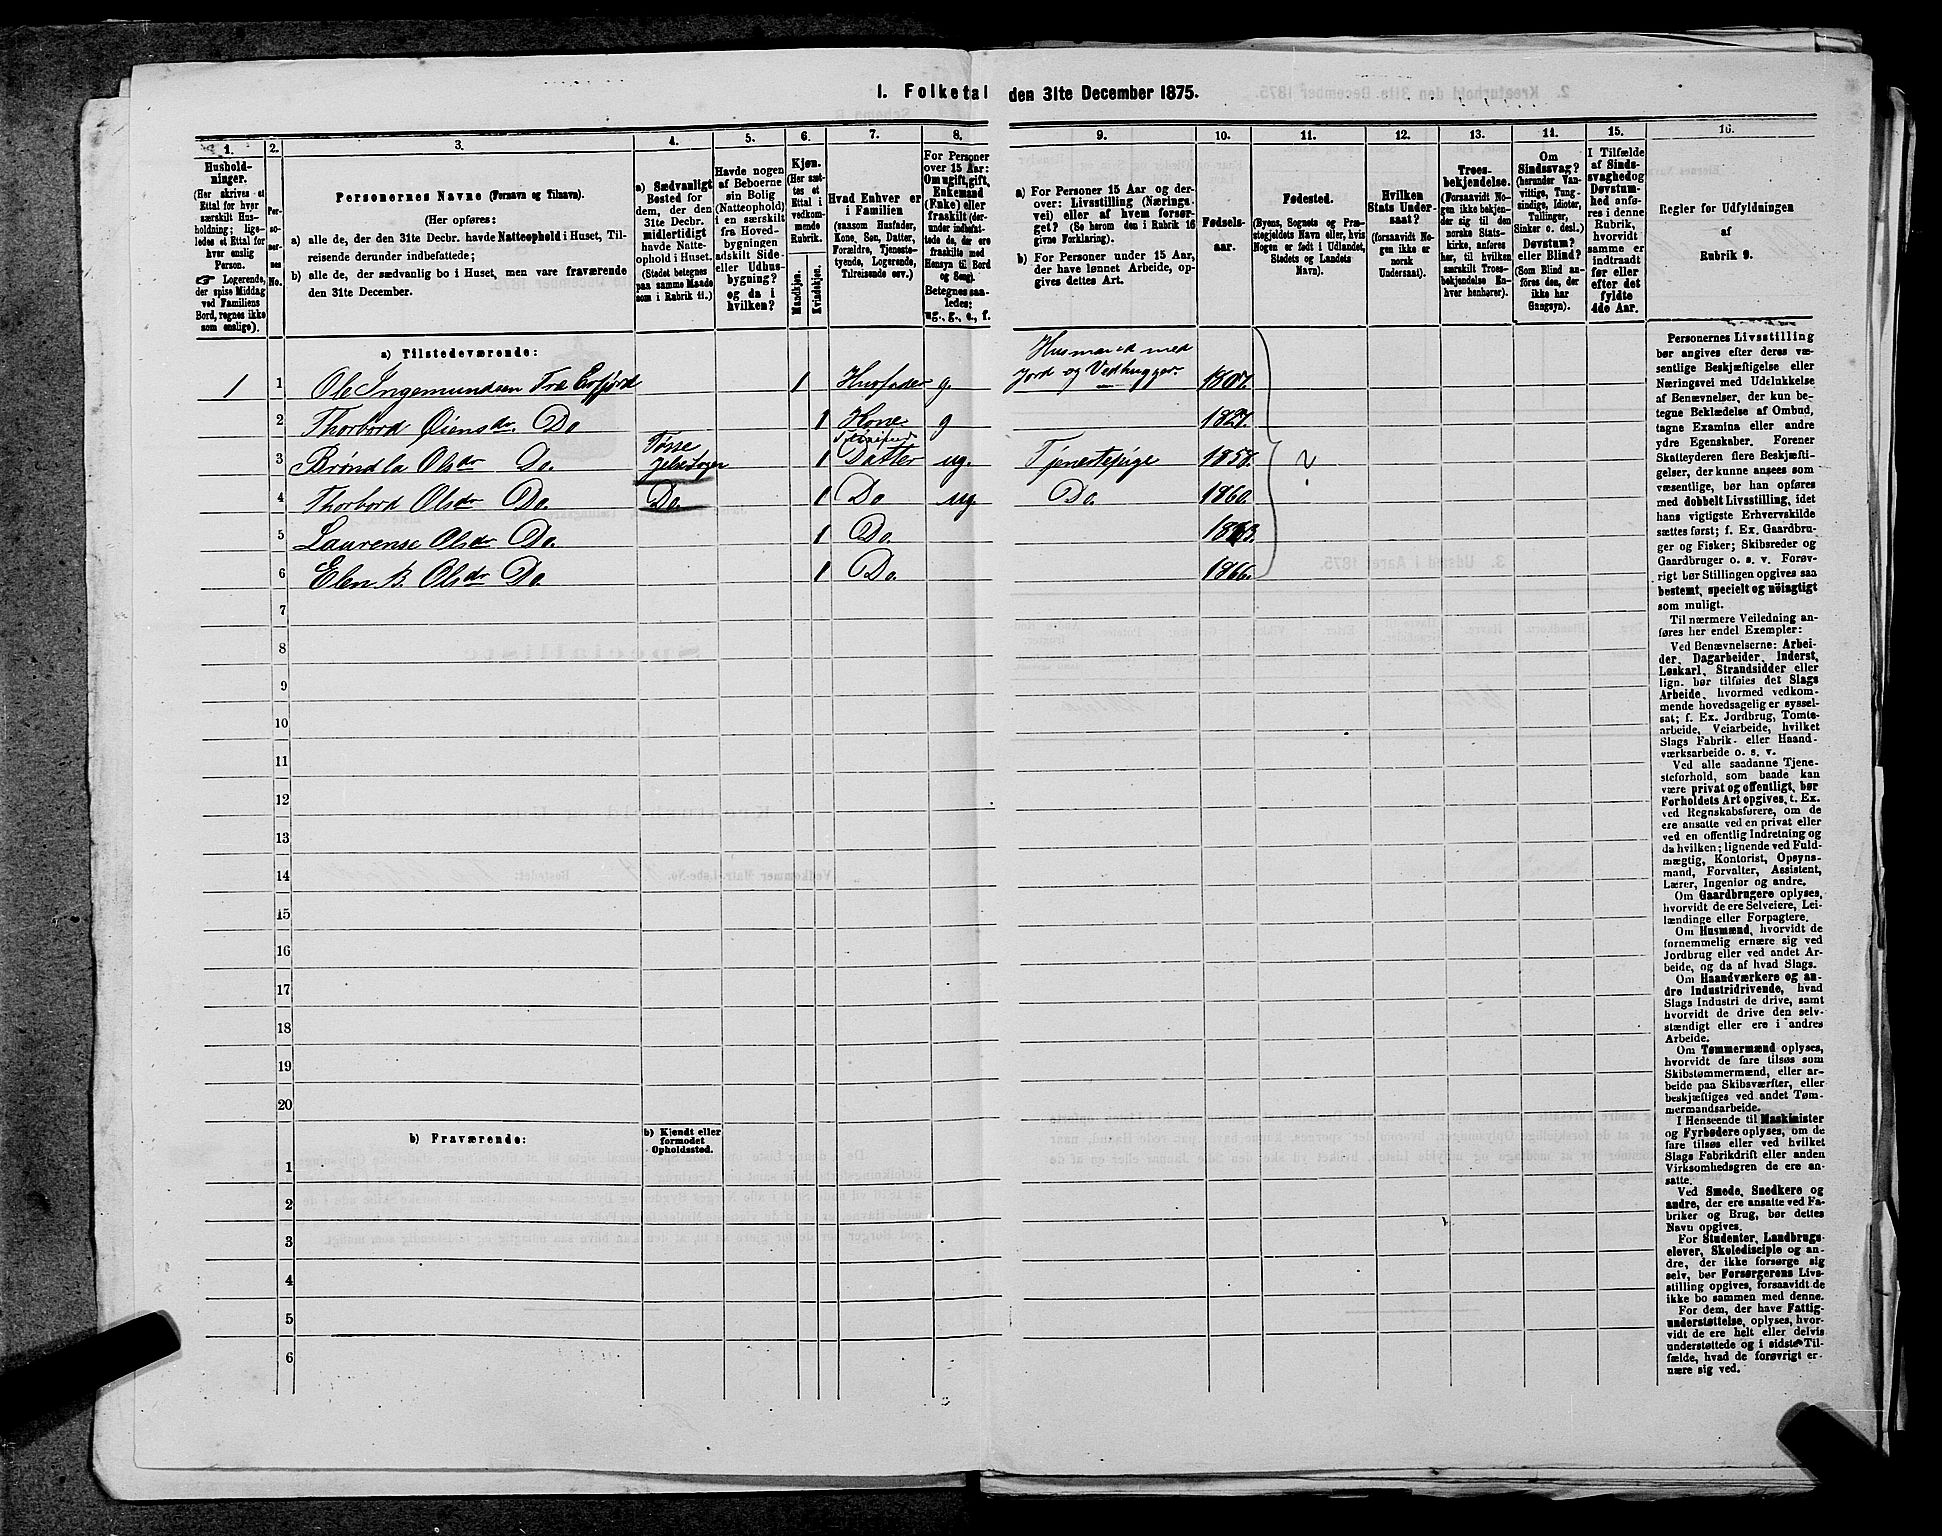 I. Folketal den 31te December 1875.
1. 2. 3. 4. 5. 6. 7. 8. 9. 10. 11. 12. 13. 14. 15. 16.
Hushold-
ninger.
(Her skrives et
Ettal for hver
særskilt Hus-
holdning; lige-
ledes et Ettal for
hver enslig
Person.
☞ Logerende,
der spise Middag
ved Familiens
Bord, regnes ikke
som enslige).
Per-
so-
ner-
nes
No.
Personernes Navne (Fornavn og Tilnavn).
(Her opføres:
a) alle de, der den 31te Decbr. havde Natteophold i Huset, Til-
reisende derunder indbefattede;
b) alle de, der sædvanlig bo i Huset, men vare fraværende
den 31te December.
a) Sædvanligt
Bosted for
dem, der den
31te Decbr.
midlertidigt
havde Natte-
ophold i Huset.
(Stedet betegnes
paa samme Maade
som i Rubrik 11.)
Havde nogen
af Beboerne
sin Bolig
(Natteophold)
i en særskilt
fra Hoved-
bygningen
adskilt Side-
eller Udhus-
bygning?
og da i
hvilken?
Kjøn.
(Her sæt-
tes et
Ettal i
vedkom-
mende
Rubrik.
Mandkjøn.
Kvindekjøn.
Hvad Enhver er
i Familien
(saasom Husfader,
Kone, Søn, Datter,
Forældre, Tjeneste-
tyende, Logerende,
Tilreisende osv.)
For Personer
over 15 Aar:
Om ugift, gift,
Enkemand
(Enke) eller
fraskilt (der-
under indbefat-
tede de, der ere
fraskilte med
Hensyn til Bord
og Seng).
Betegnes saa-
ledes:
ug., g., e., f.
a) For Personer 15 Aar og der-
over: Livsstilling (Nærings-
vei) eller af hvem forsør-
get? (Se herom den i Rubrik 16
givne Forklaring).
b) For Personer under 15 Aar,
der have lønnet Arbeide, op-
gives dettes Art.
Fødsels-
aar.
Fødested.
(Byens, Sognets og Præ-
stegjeldets Navn eller, hvis
Nogen er født i Udlandet,
Stedets og Landets
Navn).
Hvilken
Stats Under-
saat?
(forsaavidt No-
gen ikke er
norsk
Undersaat).
Troes-
bekjendelse.
(Forsaavidt No-
gen ikke bekjen-
der sig til den
norske Stats-
kirke, anføres
her, til hvilken
særskilt Troes-
bekjendelse En-
hver henhører).
Om
Sindssvag?
(herunder Van-
vittige, Tung-
sindige, Idioter,
Tullinger,
Sinker o. desl.)
Døvstum?
eller Blind?
(Som Blind an-
føres den, der
ikke har
Gangsyn).
I Tilfælde
af Sinds-
svaghed og
Døvstum-
hed anføres
i denne
Rubrik,
hvorvidt
samme er
indtraadt
før eller
efter det
fyldte
4de Aar.
Regler for Udfyldningen
af
Rubrik 9.
a) Tilstedeværende:
1 1 Ole Ingemundsen Træ Erfjord 1 Husfader g Husmand med Jord og Vedhugger. 1807.
2 Thorbord Øiensdr. Do 1 Kone g 1827.
3 Brøndla Olsdr Do. Tøsse Jelse Sogn 1 Datter ug. Tjenestepige 1858. ?
4 Thorbord Olsdr Do. Do. 1 Do ug. Do. 1860.
5 Laurense Olsdr Do. 1 Do. 1863.
6 Elen B. Olsdr Do 1 Do. 1866.
7
8
9
10
11
12
13
14
15
16
17
18
19
20
b) Fraværende:
b) Kjendt eller
formodet
Opholdssted.
1
2
3
4
5
6
Personernes Livsstilling
bør angives efter deres væ-
sentlige Beskjæftigelse eller
Næringsvei med Udelukkelse
af Benævnelser, der kun be-
tegne Beklædelse af Ombud,
tagne Examina eller andre
ydre Egenskaber. Forener
Skatteyderen flere Beskjæfti-
gelser, der kunne ansees som
væsentlige, bør han opføres
med dobbelt Livsstilling, idet
hans vigtigste Erhvervskilde
sættes først; f. Ex. Gaardbru-
ger og Fisker; Skibsreder og
Gaardbruger o. s. v. Forøv-
rigt bør Stillingen opgives saa
bestemt, specielt og nöiagtigt
som muligt.
Til nærmere Veiledning an-
føres her endel Exempler:
Ved Benævnelserne: Arbei-
der, Dagarbeider, Inderst,
Løskarl, Strandsidder eller
lign. bør tilføies det Slags
Arbeide, hvormed vedkom-
mende hovedsagelig er syssel-
sat; f. Ex. Jordbrug, Tomte-
arbeide, Veiarbeide, hvilket
Slags Fabrik- eller Haand-
værksarbeide o. s. v.
Ved alle saadanne Tjene-
steforhold, som baade kan
være privat og offentligt, bør
Forholdets Art opgives, t. Ex.
ved Regnskabsførere, om de
ere ansatte ved en privat eller
ved en offentlig Indretning og
da hvilken; lignende ved Fuld-
mægtig, Kontorist, Opsyns-
mand, Forvalter, Assistent,
Lærer, Ingeniør og andre.
Om Gaardbrugere oplyses,
hvorvidt de ere Selveiere, Lei-
lændinge eller Forpagtere.
Om Husmænd, hvorvidt de
fornemmelig ernære sig ved
Jordbrug eller ved andet Ar-
beide, og da af hvad Slags.
Om Haandværkere og an-
dre Industridrivende, hvad
Slags Industri de drive, samt
hvorvidt de drive den selv-
stændigt eller ere i andres
Arbeide.
Om Tømmermænd oplyses,
hvorvidt de fare tilsøs som
Skibstømmermænd, eller ar-
beide paa Skibsværfter, eller
beskjæftiges ved andet Tøm-
mermandsarbeide.
I Henseende til Maskinister
og Fyrbødere oplyses, om de
fare tilsøs eller ved hvilket
Slags Fabrikdrift eller anden
Virksomhedsgren de ere an-
satte.
Ved Smede, Snedkere og
andre, der ere ansatte ved Fa-
briker og Brug, bør dettes
Navn opgives.
For Studenter, Landbrugs-
elever, Skoledisciple og an-
dre, der ikke forsørge sig
selv, bør Forsørgerens Livs-
stilling opgives, forsaavidt de
ikke bo sammen med denne.
For dem, der have Fattig-
understøttelse, oplyses, hvor-
vidt de ere helt eller delvis
understøttede og i sidste Til-
fælde, hvad de forøvrigt er-
nære sig ved.